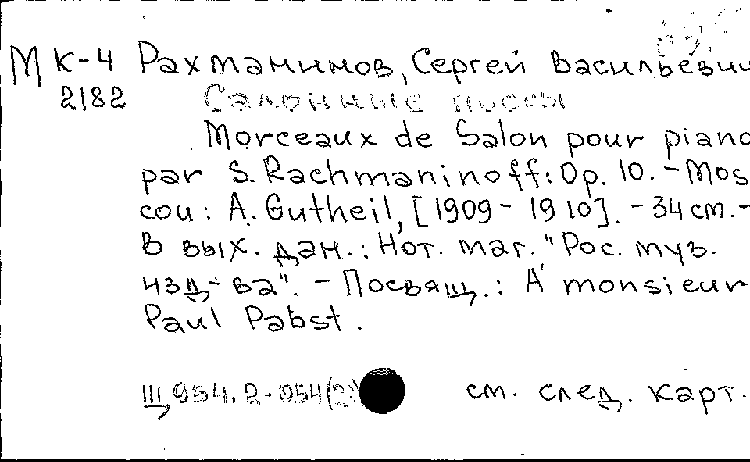 М К-4 Рахманинов, Сергей Васильевич
2182 Салонные пьесы
Morceaux de Salon pour piano
par S. Rachmaninoff: Op. 10. - Mos
cou: A. Gutheil, [1909 - 1910]. - 34 cm. -
В вых. дан.: Нот. маг. "Рос. муз.
изд-ва". - Посвящ.: A monsieur
Paul Pabst.
Щ954.2-054(2) см. след. карт.